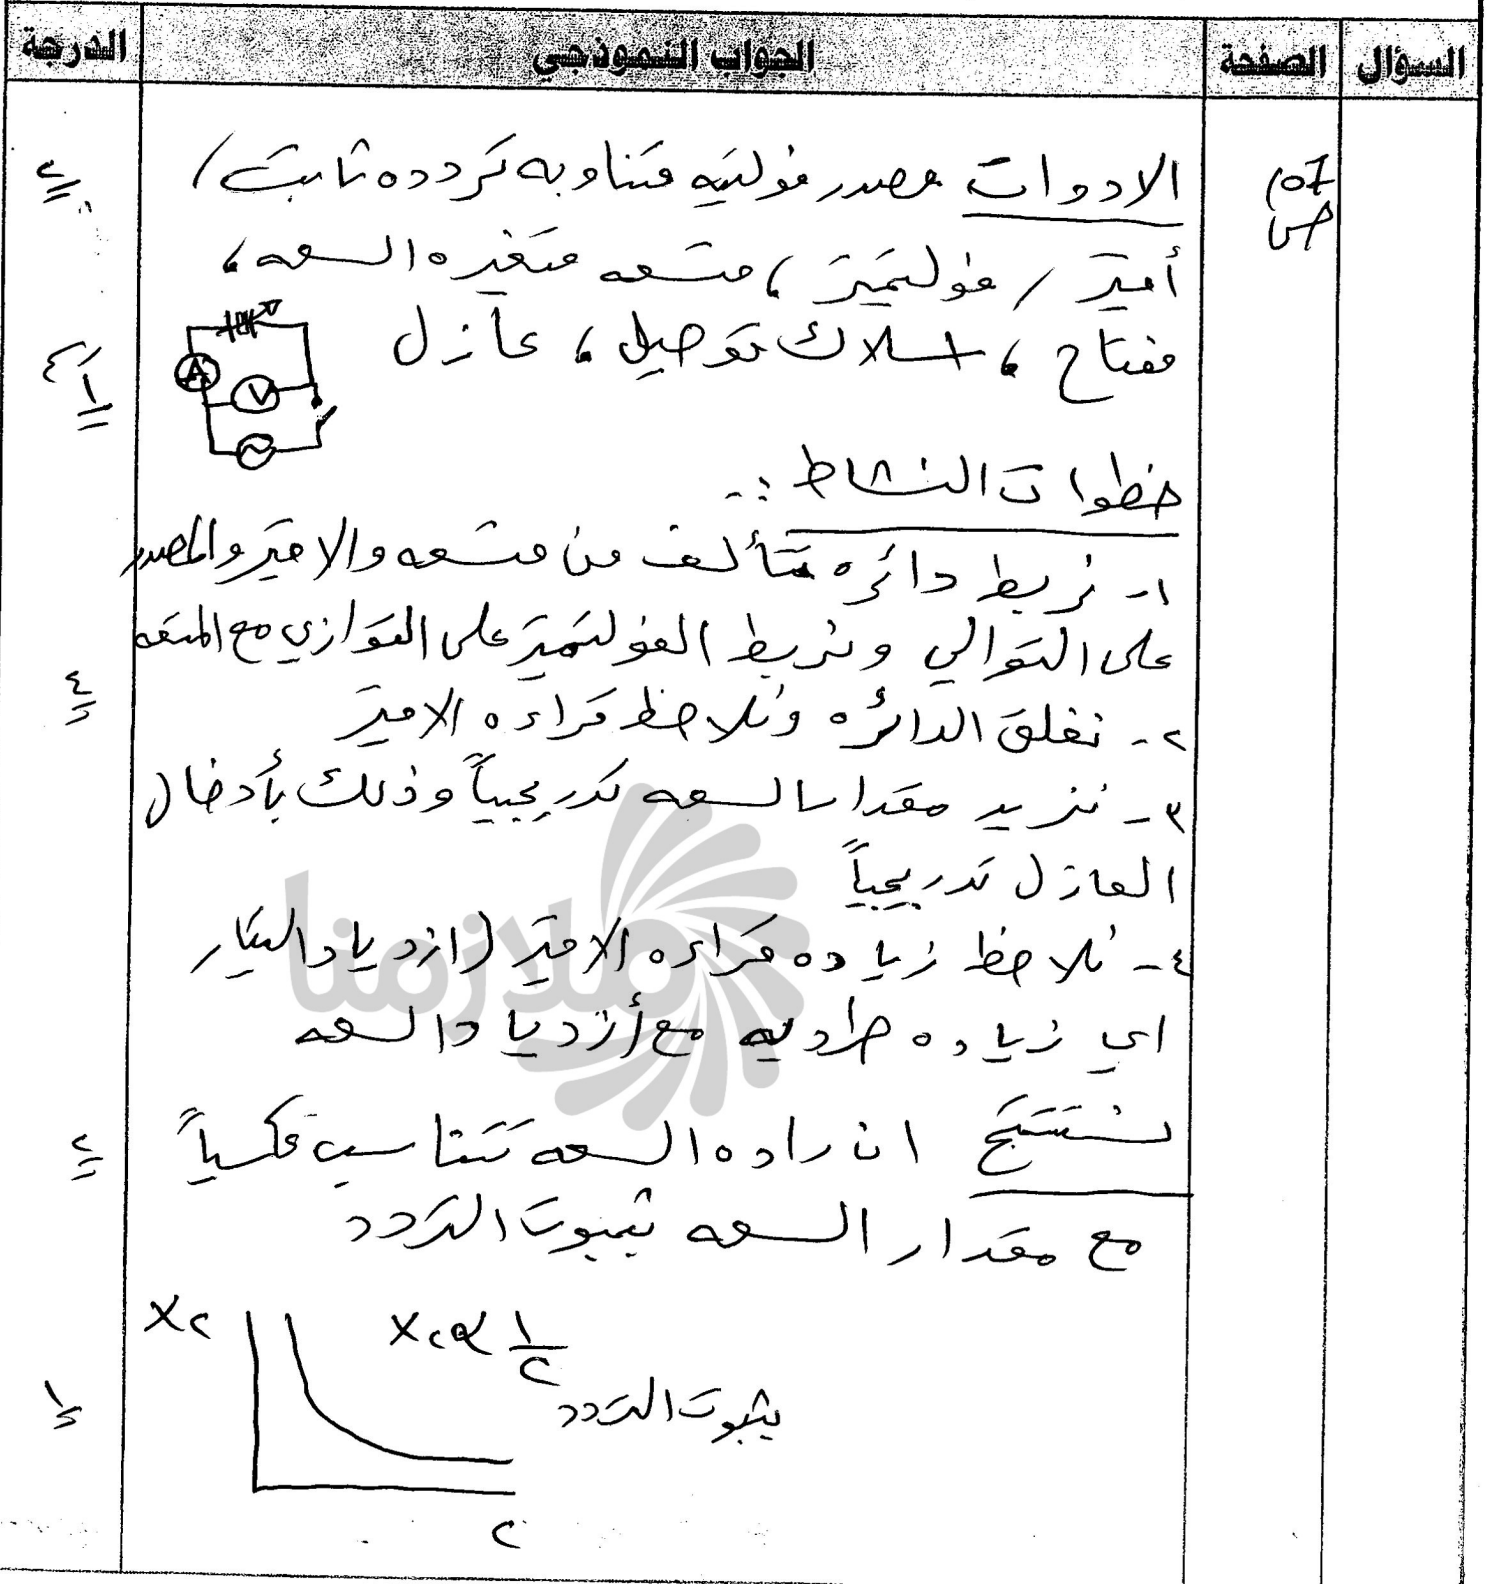 السؤال الصفحة الجواب النموذجي الدرجة
الادوات مصدر فولتيه متناوبه تردده ثابت /
أميتر / فولتميتر ، متسعه متغيره السعه ،
مفتاح ، اسلاك توصيل ، عازل
A
V
خطوات النشاط :-
١- نربط دائره تتألف من متسعه والاميتر والمصدر
على التوالي ونربط الفولتميتر على التوازي مع المتسعه
٢- نغلق الدائره ونلاحظ قراءه الاميتر
٣- نزيد مقدار السعه تدريجياً وذلك بأدخال
العازل تدريجياً
٤- نلاحظ زياده قراءه الاميتر (ازدياد التيار
اي زياده طرديه مع أزدياد السعه
نستنتج ان راده السعه تتناسب عكسياً
مع مقدار السعه بثبوت التردد
Xc
Xc α ١/C
بثبوت التردد
C
ملازمنا